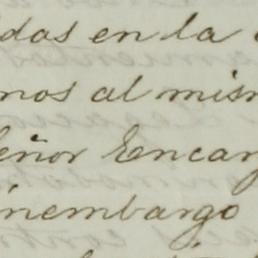 das en la
nos al mism
eñor Encar
inembargo